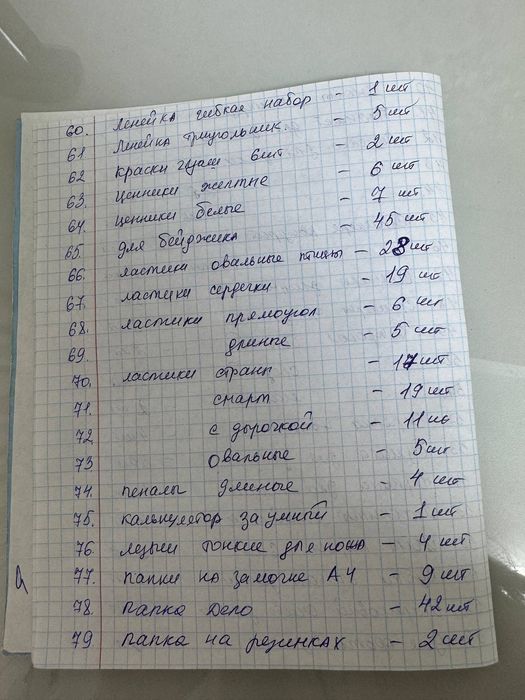 60. Линейка гибкая набор - 1 шт
61 Линейка триугольник. - 5 шт
62 Краски гуаш 6шт - 2 шт
63. Ценники желтые - 6 шт
64. ценники белые - 7 шт
65. для бейджика - 45 шт
66. ластики овальные птицы - 28 шт
67. ластики сердечки - 19 шт
68. ластики прямоугол - 6 шт
69. длиные - 5 шт
70. ластики страт - 17 шт
71. смарт - 19 шт
72 с дырочкой - 11 шт
73 овальные - 5 шт
74. пеналы длиные - 4 шт
75. калькулятор за умный - 1 шт
76. лезвии тонкие для ножа - 4 шт
77. папки на замочке А4 - 9 шт
78. папка дело - 42 шт
79 папка на резинках - 2 шт